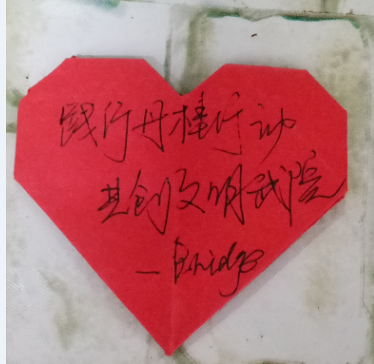 践行丹桂行动
共创文明武院
—Bridge